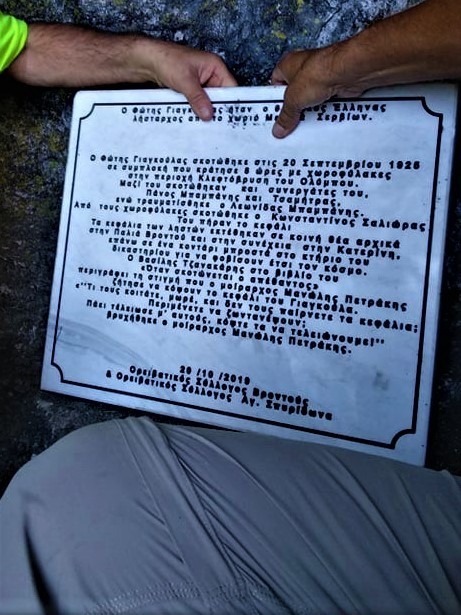 Ο Φώτης Γιαγκούλας ήταν ο Έλληνας
λήσταρχος από το χωριό Σερβίων.
Ο Φώτης Γιαγκούλας σκοτώθηκε στις 20 Σεπτεμβρίου 1925
σε συμπλοκή που κράτησε 8 ώρες με χωροφύλακες
στην περιοχή Κλεφτόβρυση του Ολύμπου.
Μαζί του σκοτώθηκαν και συνεργάτες του.
Πάνος Μπαμπάνης και Τσαμήτρας.
ενώ τραυματίσθηκε ο Λεωνίδας Μπαμπάνης.
Από τους χωροφύλακες σκοτώθηκε ο Κωνσταντίνος Σαλιώρας
Του πήραν το κεφάλι
Τα κεφάλια των ληστών εκτέθηκαν σε κοινή θέα αρχικά
στην Παλιά Βροντού και στη συνέχεια στην Κατερίνη,
επάνω σε ένα κοντάρι μπροστά στο κτήριο του
δικαστηρίου για να φοβηθεί έτσι ο κόσμος.
Ο Βασίλης Τζανακάρης στο βιβλίο του
«Όταν σκοτώνεται ο λεβέντης»
περιγράφει τη στιγμή που ο μοίραρχος Μανώλης Πετράκης
ζήτησε να πάρουν το κεφάλι του Γιαγκούλα.
«"Τι τους κοιτάτε, μωρέ, και δεν τους παίρνετε τα κεφάλια;
Περιμένετε να ζωντανέψουν;
Πάει τέλειωσε μ' αυτούς, κόψτε τα να τελειώνουμε!"
βρυχήθηκε ο μοίραρχος Μανώλης Πετράκης.
20 /10 /2019
Ορειβατικός Σύλλογος Βροντούς
& Ορειβατικός Σύλλογος Αγ. Σπυρίδωνα